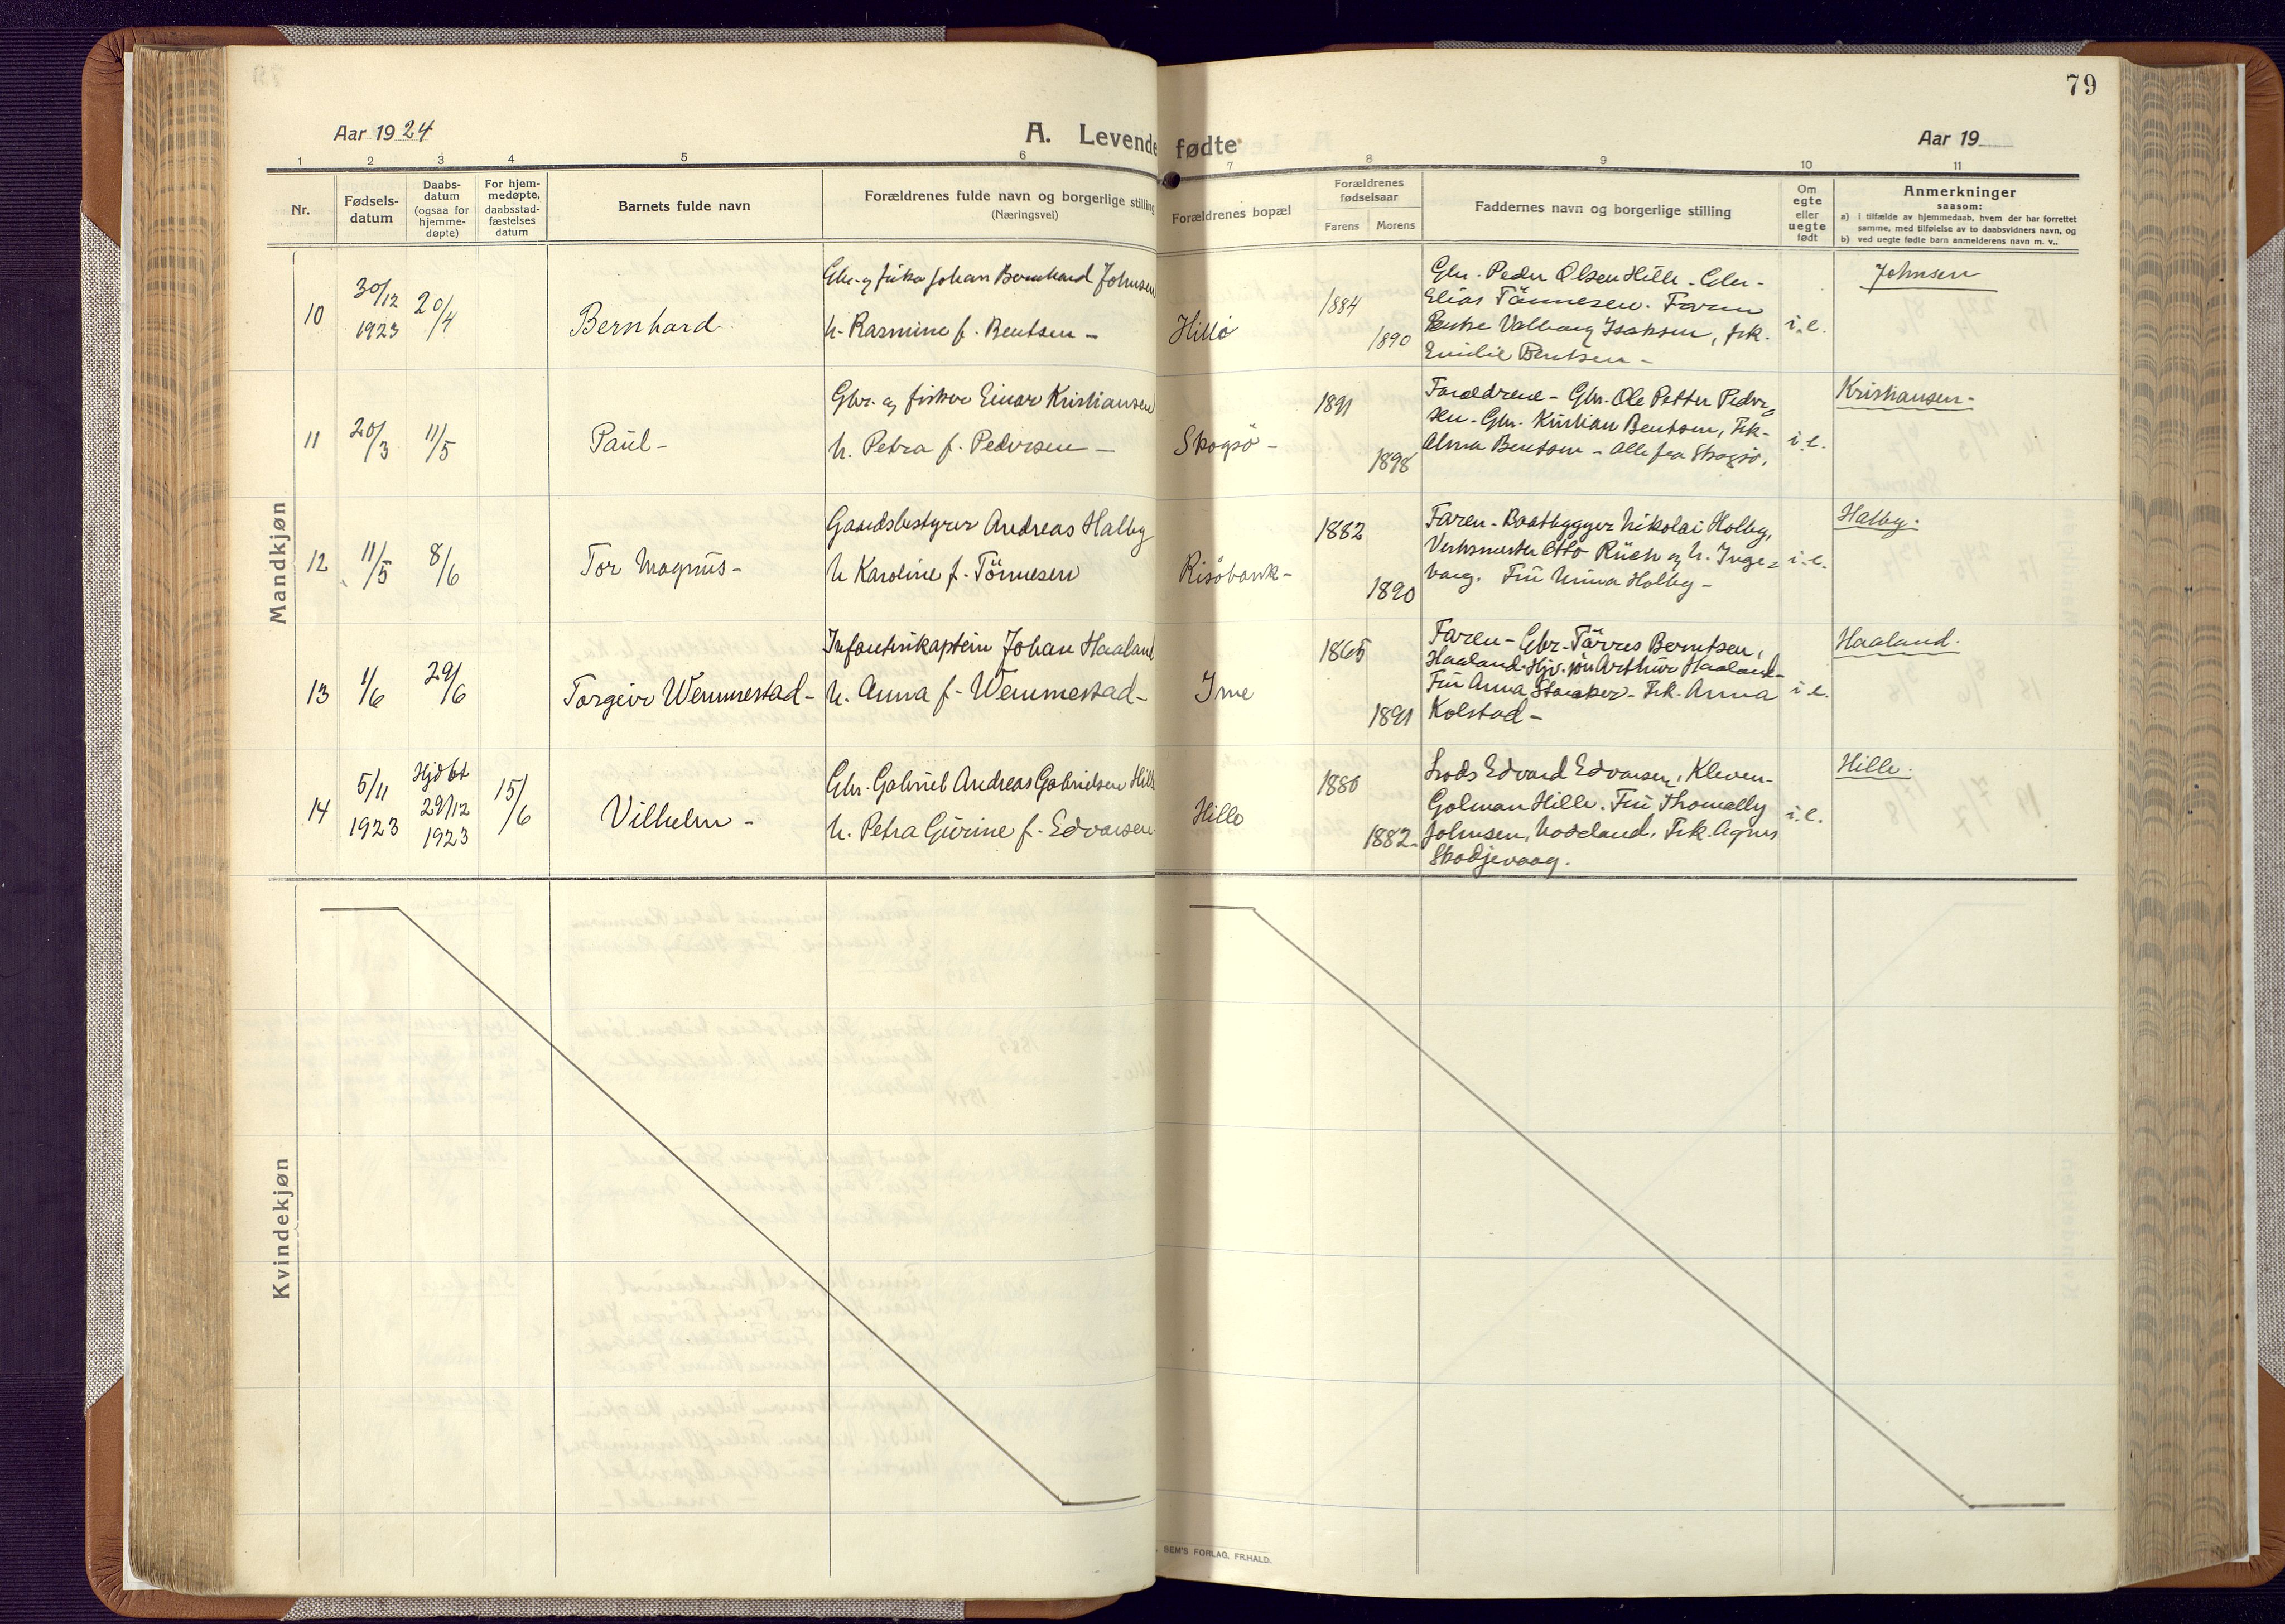 79
Aar 1924
A. Levende fødte
Aar 19
1 2 3 4 5 6 7 8 9 10 11
Nr.
Fødsels-
datum
Daabs-
datum
(ogsaa for
hjemme-
døpte)
For hjem-
medøpte,
daabsstad-
fæstelses
datum
Barnets fulde navn
Forældrenes fulde navn og borgerlige stilling
(Næringsvei)
Forældrenes bopæl
Forældrenes
fødselsaar
Farens Morens
Faddernes navn og borgerlige stilling
Om
egte
eller
uegte
født
Anmerkninger
saasom:
a) i tilfælde av hjemmedaab, hvem der har forrettet
samme, med tilføielse av to daabsvidners navn, og
b) ved uegte fødte barn anmelderens navn m. v..
Mandkjøn
10
30/12
1923
20/4
Bernhard
Gbr. og fisker Johan Bernhard Johnsen
h. Rasmine f. Bentsen -
Hillö
1884
1890
Gbr. Peder Olsen Hille - Gbr.
Elias Tönnesen. Faren
Valborg Isaksen, frk.
Emilie Bentsen -
i. e.
Johnsen
11
20/3
11/5
Paul -
Gbr. og fisker Einar Kristiansen
h. Petra f. Pedersen -
Skogsö -
1891
1898
Forældrene - Gbr. Ole Petter Peder-
sen - Gbr. Kristian Bentsen, Frk.
Alma Bentsen - Alle fra Skogsö.
i. e.
Kristiansen -
12
11/5
8/6
Tor Magnus -
Gaardsbestyrer Andreas Halby
h Karoline f. Tönnesen
Risöbank -
1882
1890
Faren - Baatbygger Nikolai Holby,
Verksmester Otto Rüch og h. Inge-
borg. Fru Minna Holby -
i. e.
Halby.
13
1/6
29/6
Torgeir Wemmestad -
Infanterikaptein Johan Haaland
h. Anna f. Wemmestad -
Ime
1865
1891
Faren - Gbr. Tarres Berntsen,
Haaland. Arthur Haaland -
Fru Anna - Frk. Anna
Kolstad -
i. e.
Haaland.
14
5/11
1923
Hjdbt
29/12
1923
15/6
Vilhelm -
Gbr. Gabriel Andreas Gabrielsen Hille
h. Petra Gurine f. Edvarsen
Hillö
1880
1882 -
Lods Edvard Edvarsen, Kleven -
Golman Hille. Fru Thomally
Johnsen, Frk. Agnes
Skodjevaag.
i. e.
Hille.
Kvindekjøn
SEM'S FORLAG, FR.HALD.